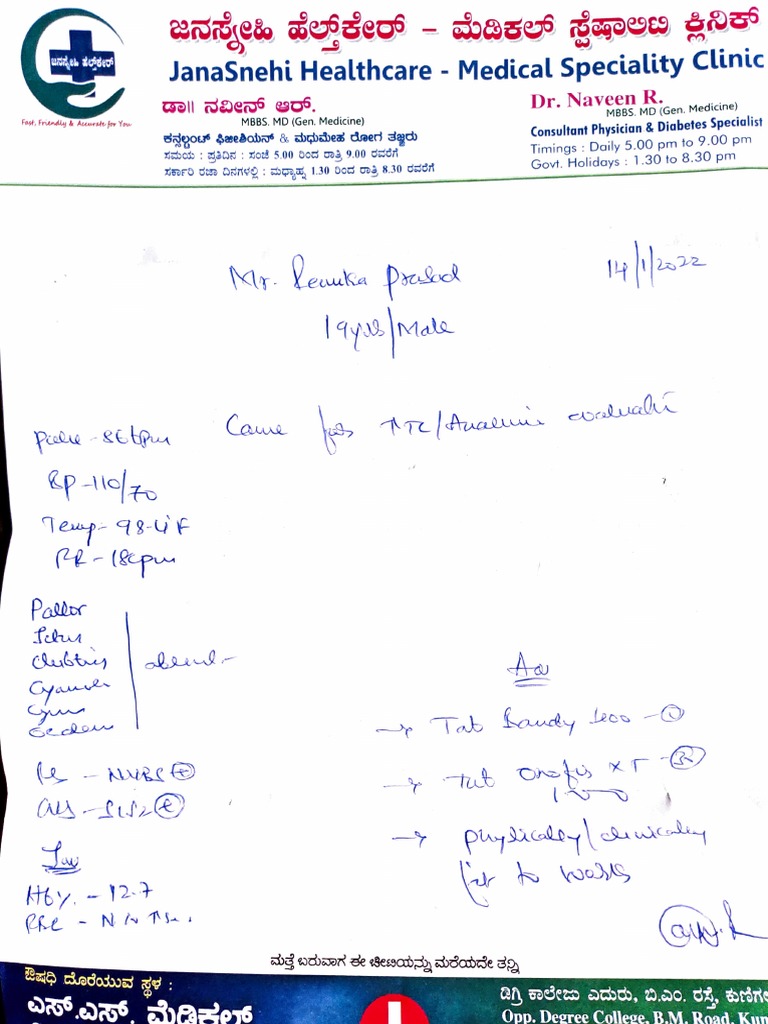 ಜನಸ್ನೇಹಿ ಹೆಲ್ತ್‌ಕೇರ್ – ಮೆಡಿಕಲ್ ಸ್ಪೆಷಾಲಿಟಿ ಕ್ಲಿನಿಕ್
JanaSnehi Healthcare - Medical Speciality Clinic
ಜನಸ್ನೇಹಿ ಹೆಲ್ತ್‌ಕೇರ್
Fast, Friendly & Accurate for You
ಡಾ॥ ನವೀನ್ ಆರ್.
MBBS. MD (Gen. Medicine)
ಕನ್ಸಲ್ಟಂಟ್ ಫಿಜೀಶಿಯನ್ & ಮಧುಮೇಹ ರೋಗ ತಜ್ಞರು
ಸಮಯ : ಪ್ರತಿದಿನ : ಸಂಜೆ 5.00 ರಿಂದ ರಾತ್ರಿ 9.00 ರವರೆಗೆ
ಸರ್ಕಾರಿ ರಜಾ ದಿನಗಳಲ್ಲಿ : ಮಧ್ಯಾಹ್ನ 1.30 ರಿಂದ ರಾತ್ರಿ 8.30 ರವರೆಗೆ
Dr. Naveen R.
MBBS. MD (Gen. Medicine)
Consultant Physician & Diabetes Specialist
Timings : Daily 5.00 pm to 9.00 pm
Govt. Holidays : 1.30 to 8.30 pm
Mr. Renuka Prasad 14/1/2022
19yrs/Male
Came for
Pulse - 86bpm
BP - 110/70
Temp - 98.4°F
RR - 18cpm
Pallor
Icterus
Clubbing
absent
Cyanosis
Oedema
Adv
→ Tab Bandy 400 - ①
→ Tab Orofer XT - 30
→ physically/clinically
fit to work
RS - NVBS ⊕
CVS - S1S2 ⊕
Inv
Hb% - 12.7
RBC - N
ಮತ್ತೆ ಬರುವಾಗ ಈ ಚೀಟಿಯನ್ನು ಮರೆಯದೇ ತನ್ನಿ
ಔಷಧಿ ದೊರೆಯುವ ಸ್ಥಳ :
ಎಸ್.ಎಸ್. ಮೆಡಿಕಲ್
ಡಿಗ್ರಿ ಕಾಲೇಜು ಎದುರು, ಬಿ.ಎಂ. ರಸ್ತೆ, ಕುಣಿಗ
Opp. Degree College, B.M. Road, Kun